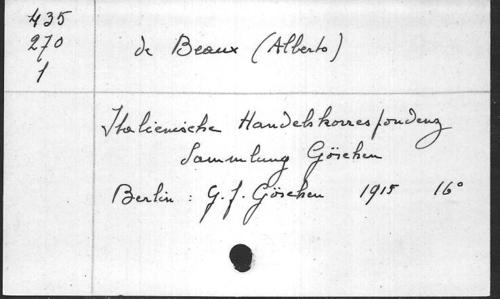 435
270
1
de Beaux (Alberto)
Italienische Handelskorrespondenz
Sammlung Göschen
Berlin : G. J. Göschen 1915 16°